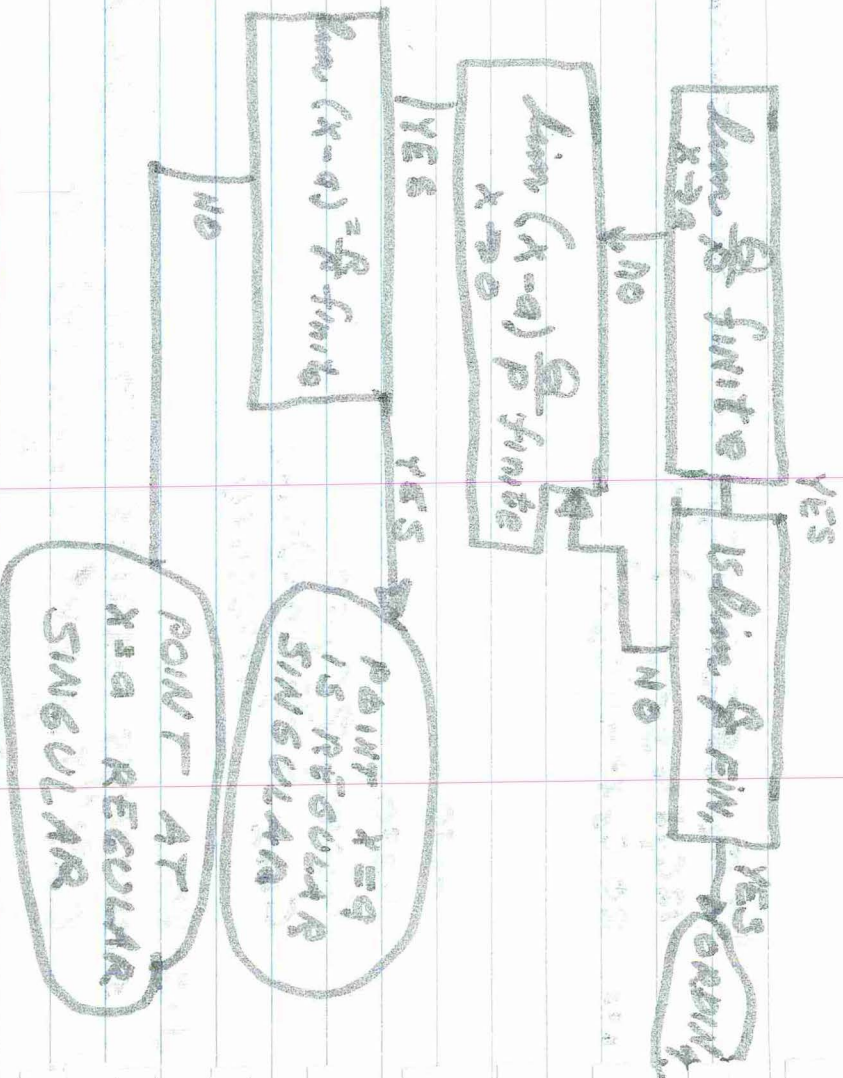 lim Q/P finite
x→a
YES
Is lim R/P FIN.
YES
ORDIN.
NO
NO
lim (x-a) Q/P finite
x→0
YES
lim (x-a)² R/P finite
YES
POINT x=a
IS REGULAR
SINGULAR
NO
POINT AT
x=a REGULAR
SINGULAR